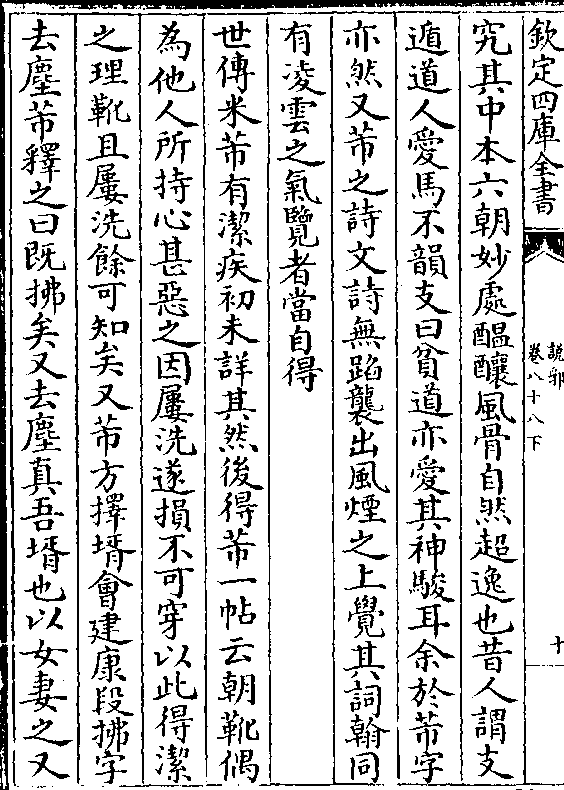 欽定四庫全書
說郛
卷八十八下
十
究其中本六朝妙處醖釀風骨自然超逸也昔人謂支
遁道人愛馬不韻支曰貧道亦愛其神駿耳余於芾字
亦然又芾之詩文詩無蹈襲出風煙之上覺其詞翰同
有凌雲之氣覽者當自得
世傳米芾有潔疾初未詳其然後得芾一帖云朝靴偶
為他人所持心甚惡之因屢洗遂損不可穿以此得潔
之理靴且屢洗餘可知矣又芾方擇壻會建康段拂字
去塵芾釋之曰既拂矣又去塵真吾壻也以女妻之又